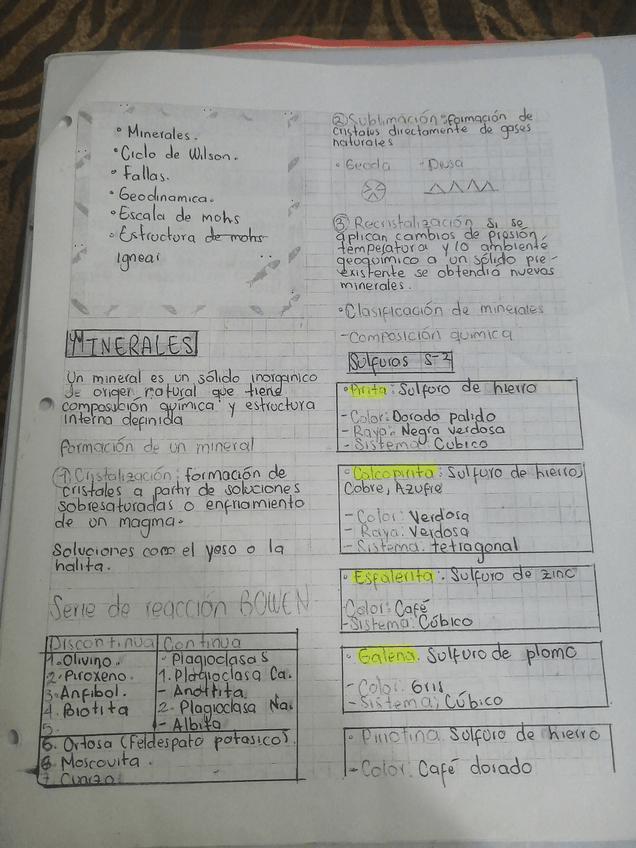 • Minerales.
• Ciclo de Wilson.
• Fallas.
• Geodinamica.
• Escala de mohs
• Estructura de mohs
ignear
MINERALES
Un mineral es un sólido inorganico
de origen natural que tiene
composición química y estructura
interna definida
Formación de un mineral
① Cristalización: formación de
cristales a partir de soluciones
sobresaturadas o enfriamiento
de un magma.
Soluciones como el yeso o la
halita.
Serie de reacción BOWEN
Discontinua Continua
1. Olivino. - Plagioclasas
2. Piroxeno. 1. Plagioclasa Ca.
3. Anfibol. - Anortita
4. Biotita 2. Plagioclasa Na.
5. - Albita
6. Ortosa (Feldespato potasico).
8. Moscovita.
7. Cuarzo
② Sublimación: formación de
cristales directamente de gases
naturales
• Geoda - Drusa
③ Recristalización si se
aplican cambios de presión,
temperatura y/o ambiente
geoquimico a un sólido pre-
existente se obtendrá nuevos
minerales.
• Clasificación de minerales
- Composición quimica
Sulfuros S-2
• Pirita: Sulfuro de hierro
- Color: Dorado palido
- Raya: Negra verdosa
- Sistema: Cubico
• Calcopirita: Sulfuro de hierro,
Cobre, Azufre
- Color: Verdosa
- Raya: Verdosa
- Sistema: tetragonal
• Esfalerita: Sulfuro de zinc
Color: Café
- Sistema: Cúbico
• Galena: Sulfuro de plomo
- Color: Gris
- Sistema: Cúbico
• Pirrotina: Sulfuro de hierro
- Color: Café dorado